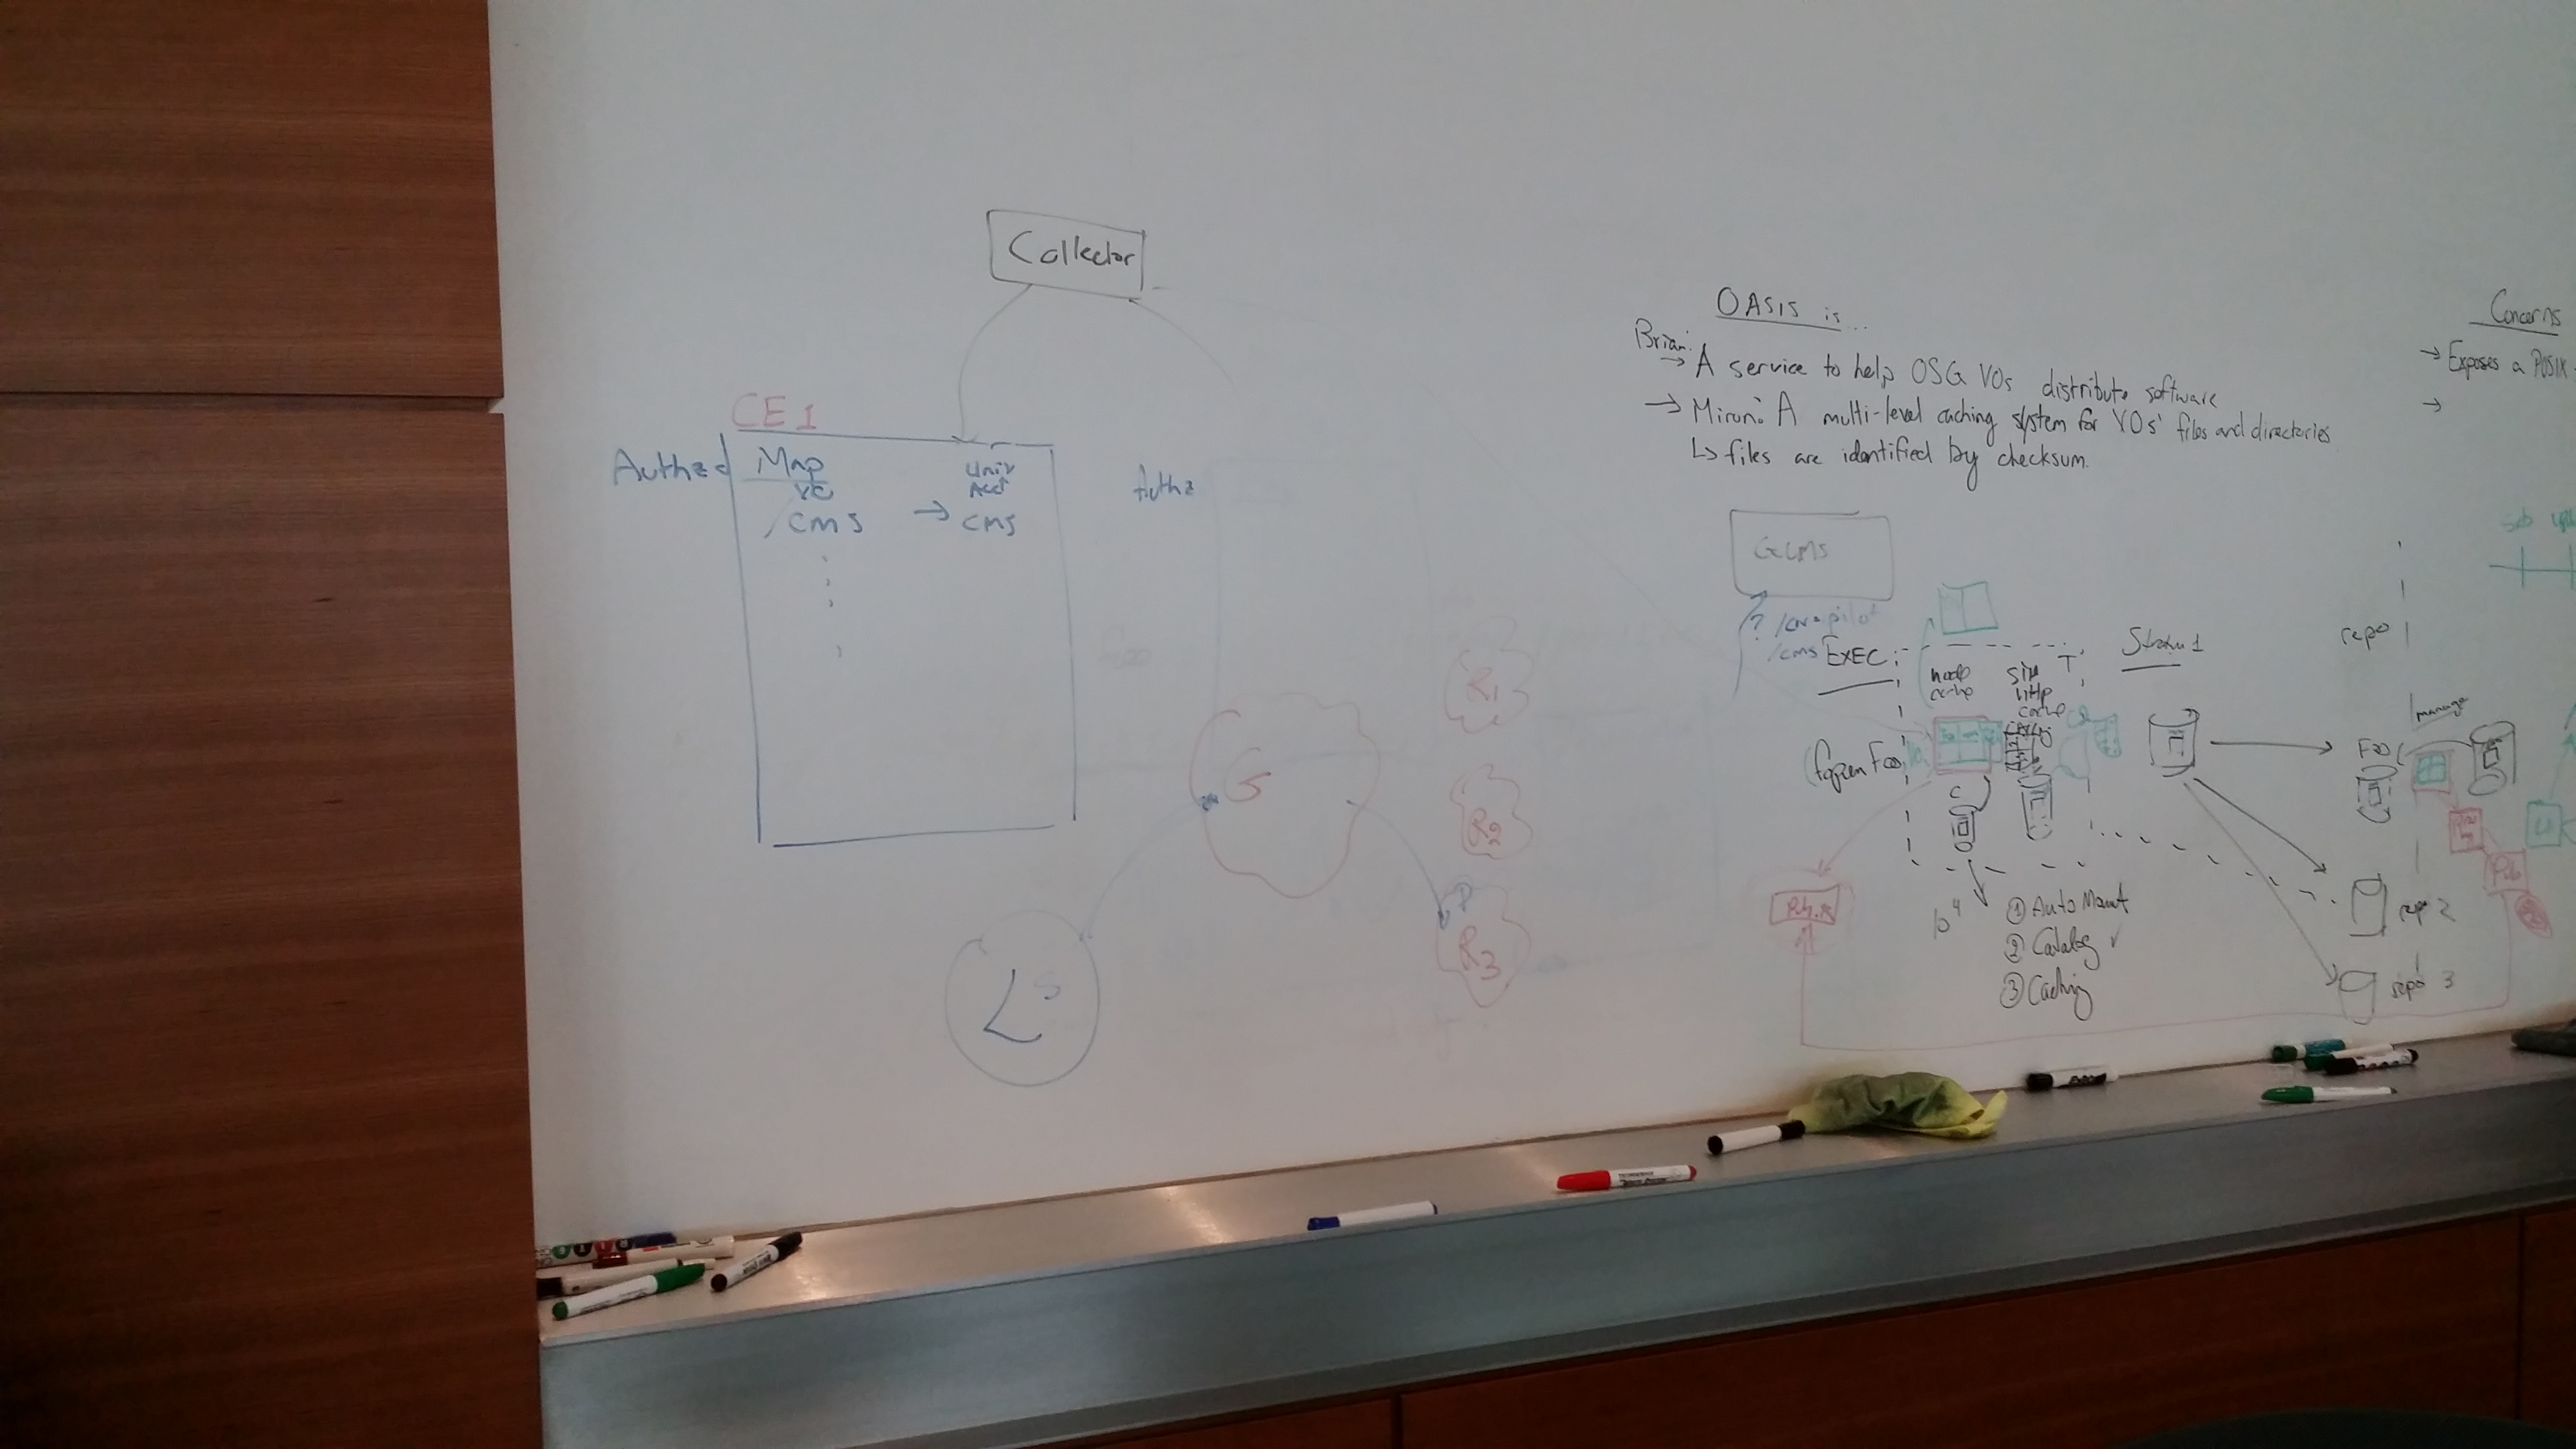 Collector
CE1
Authzd
Map
VO
/cms → cms
Univ
Acct
Authz
G
R1
R2
P
R3
L S
OASIS is...
Brian:
→ A service to help OSG VOs distribute software
→ Miron: A multi-level caching system for VOs' files and directories
↳ files are identified by checksum.
Concerns
→ Exposes a POSIX
→
?
/cms
EXEC
node
cache
site
http
cache
Stratum 1
repo
manage
fopen Foo
C
10^4
① AutoMount
② Catalog ✓
③ Caching
repo 2
repo 3